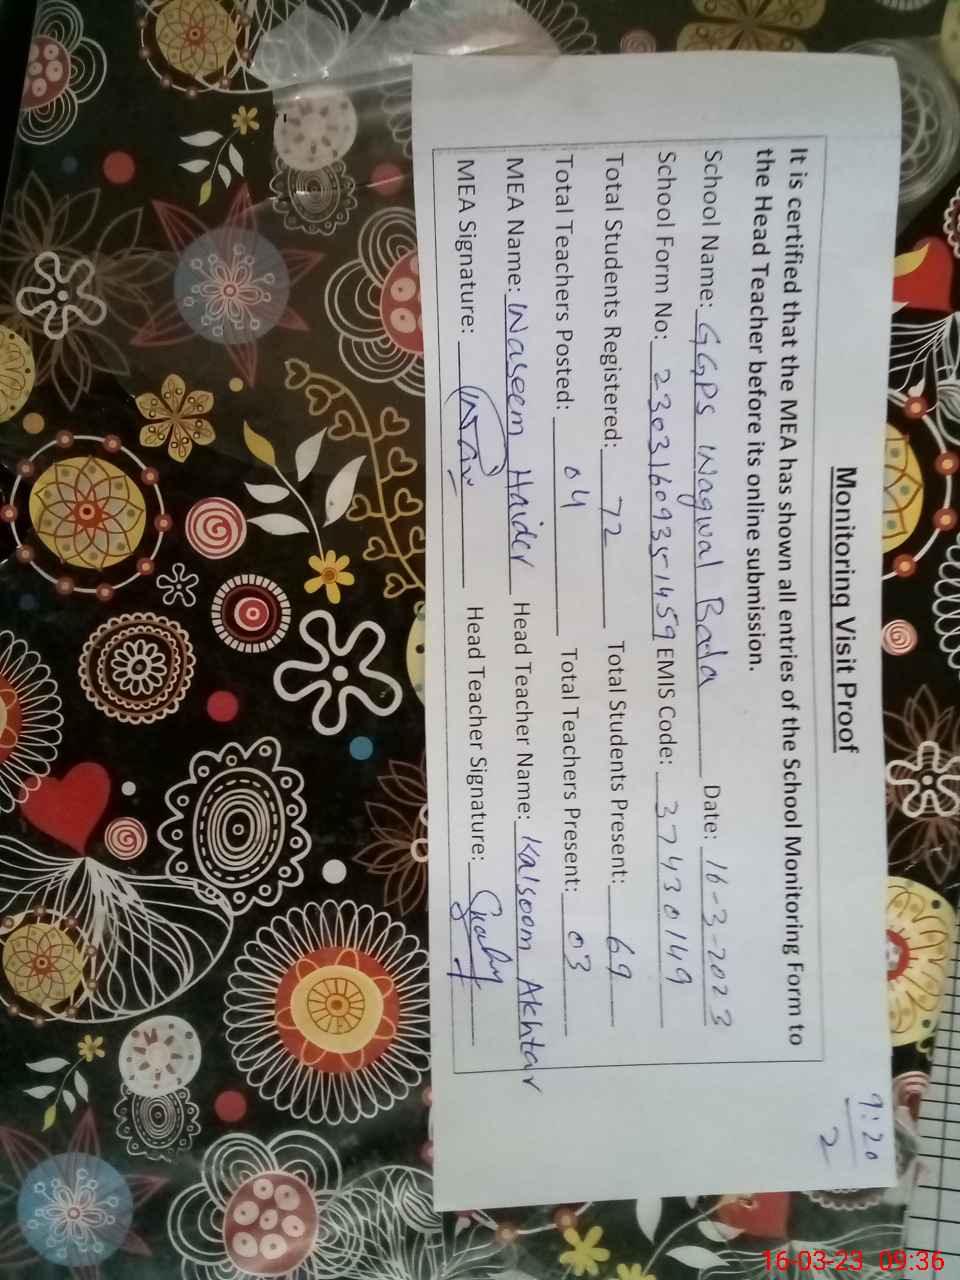 9:20
2
Monitoring Visit Proof
It is certified that the MEA has shown all entries of the School Monitoring Form to
the Head Teacher before its online submission.
School Name: GGPS Wagwal Bada Date: 16-3-2023
School Form No: 23031609351459 EMIS Code: 37430149
Total Students Registered: 72 Total Students Present: 69
Total Teachers Posted: 04 Total Teachers Present: 03
MEA Name: Waseem Haider Head Teacher Name: Kalsoom Akhtar
MEA Signature: Head Teacher Signature:
16-03-23 09:36